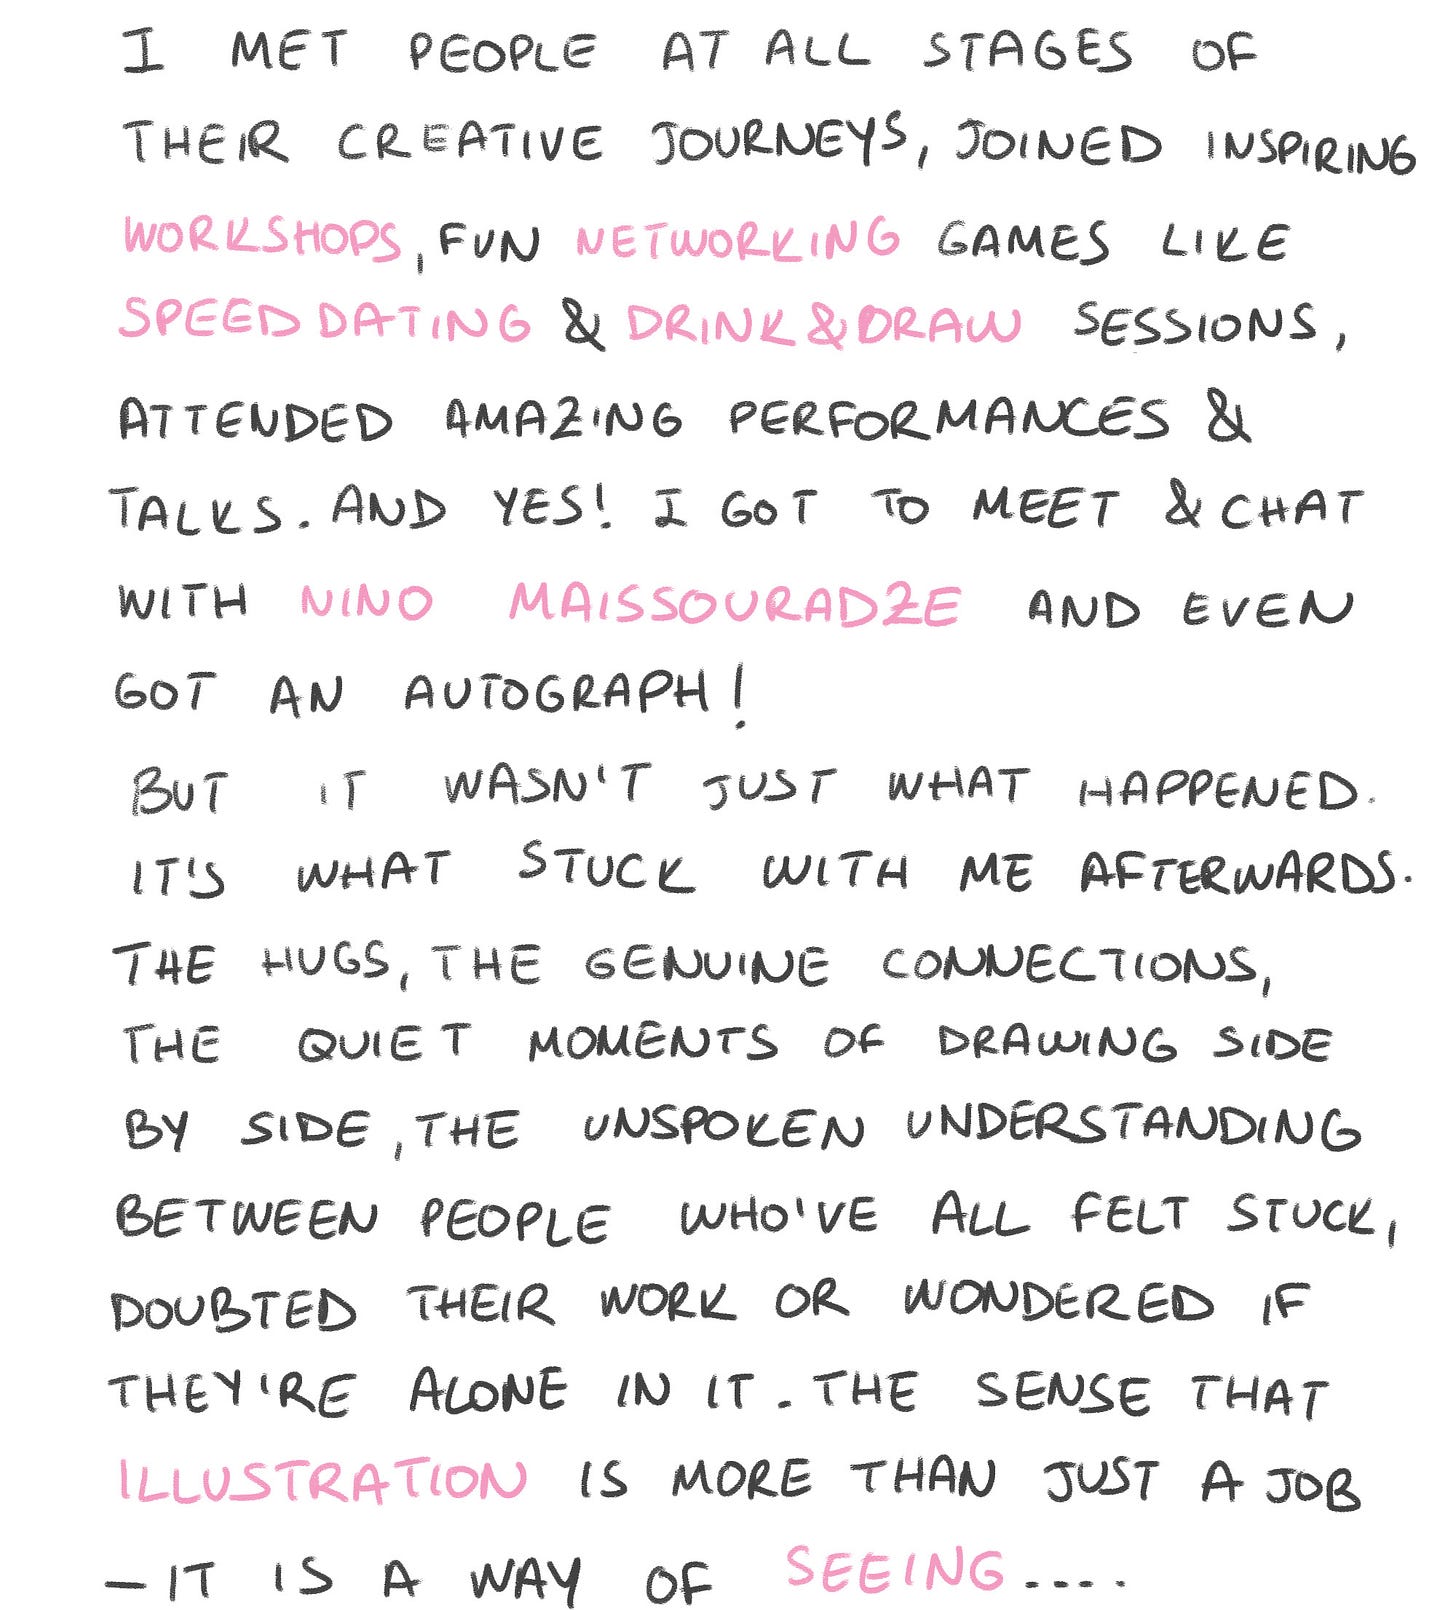 I MET PEOPLE AT ALL STAGES OF
THEIR CREATIVE JOURNEYS, JOINED INSPIRING
WORKSHOPS, FUN NETWORKING GAMES LIKE
SPEED DATING & DRINK & DRAW SESSIONS,
ATTENDED AMAZING PERFORMANCES &
TALKS. AND YES! I GOT TO MEET & CHAT
WITH NINO MAISSOURADZE AND EVEN
GOT AN AUTOGRAPH!
BUT IT WASN'T JUST WHAT HAPPENED.
IT'S WHAT STUCK WITH ME AFTERWARDS.
THE HUGS, THE GENUINE CONNECTIONS,
THE QUIET MOMENTS OF DRAWING SIDE
BY SIDE, THE UNSPOKEN UNDERSTANDING
BETWEEN PEOPLE WHO'VE ALL FELT STUCK,
DOUBTED THEIR WORK OR WONDERED IF
THEY'RE ALONE IN IT. THE SENSE THAT
ILLUSTRATION IS MORE THAN JUST A JOB
– IT IS A WAY OF SEEING....